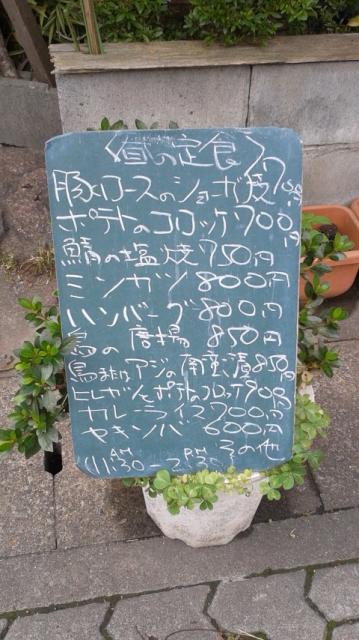 〈旬の定食〉
豚ロースのショーガ焼7
ポテトのコロッケ700円
鯖の塩焼750円
ミンカツ800円
ハンバーグ800円
鳥の唐揚850円
鳥又はアジの南蛮漬850円
ヒレカツとポテトのコロッケ900円
カレーライス700円
ヤキソバ600円
その他
AM 11:30-PM 2:30